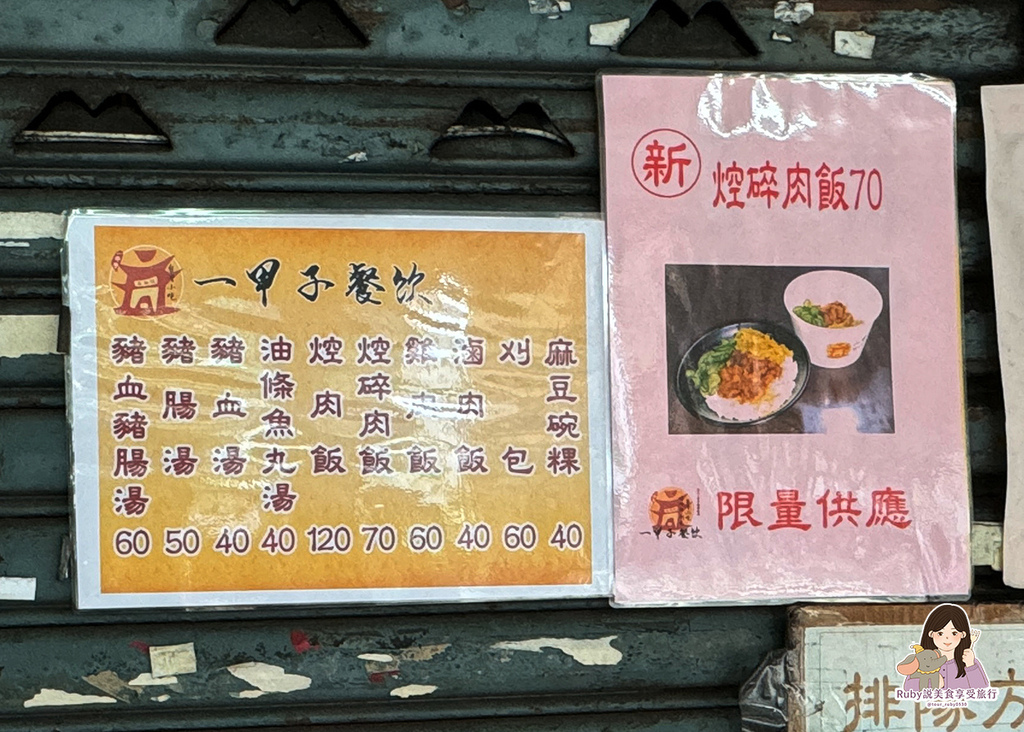 一甲子餐飲
麻豆碗粿 40
刈包 60
滷肉飯 40
雞肉飯 60
焢碎肉飯 70
焢肉飯 120
油條魚丸湯 40
豬血湯 40
豬腸湯 50
豬血豬腸湯 60
新
焢碎肉飯70
一甲子餐飲
限量供應
排隊方
Ruby說美食享受旅行